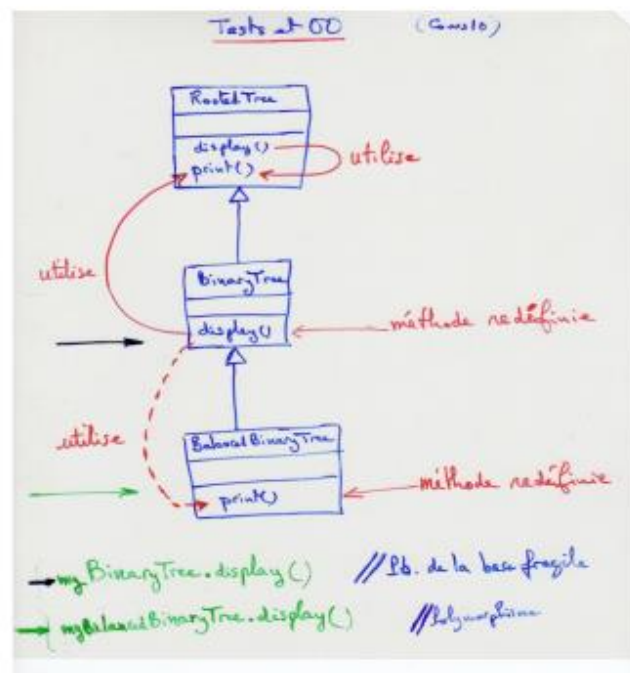 Tests et OO
RootedTree
display()
print()
utilise
utilise
BinaryTree
display()
méthode redéfinie
utilise
BalancedBinaryTree
print()
méthode redéfinie
myBinaryTree.display()
// Pb. de la base fragile
myBalancedBinaryTree.display()
// Polymorphisme